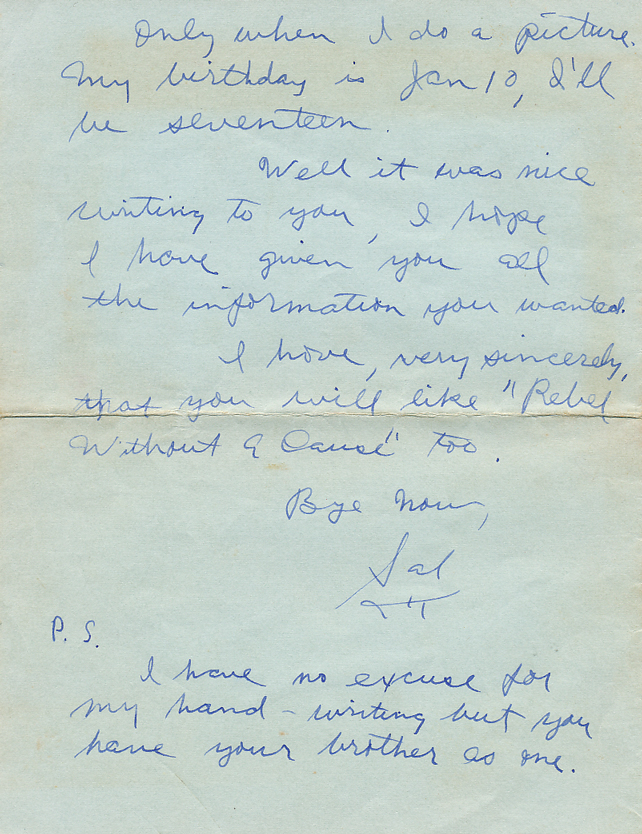 Only when I do a picture.
My birthday is Jan 10, I'll
be seventeen.
Well it was nice
writing to you, I hope
I have given you all
the information you wanted.
I hove, very sincerely,
that you will like "Rebel
Without A Cause" too.
Bye Now,
Sal
P. S.
I have no excuse for
my hand-writing but you
have your brother as one.